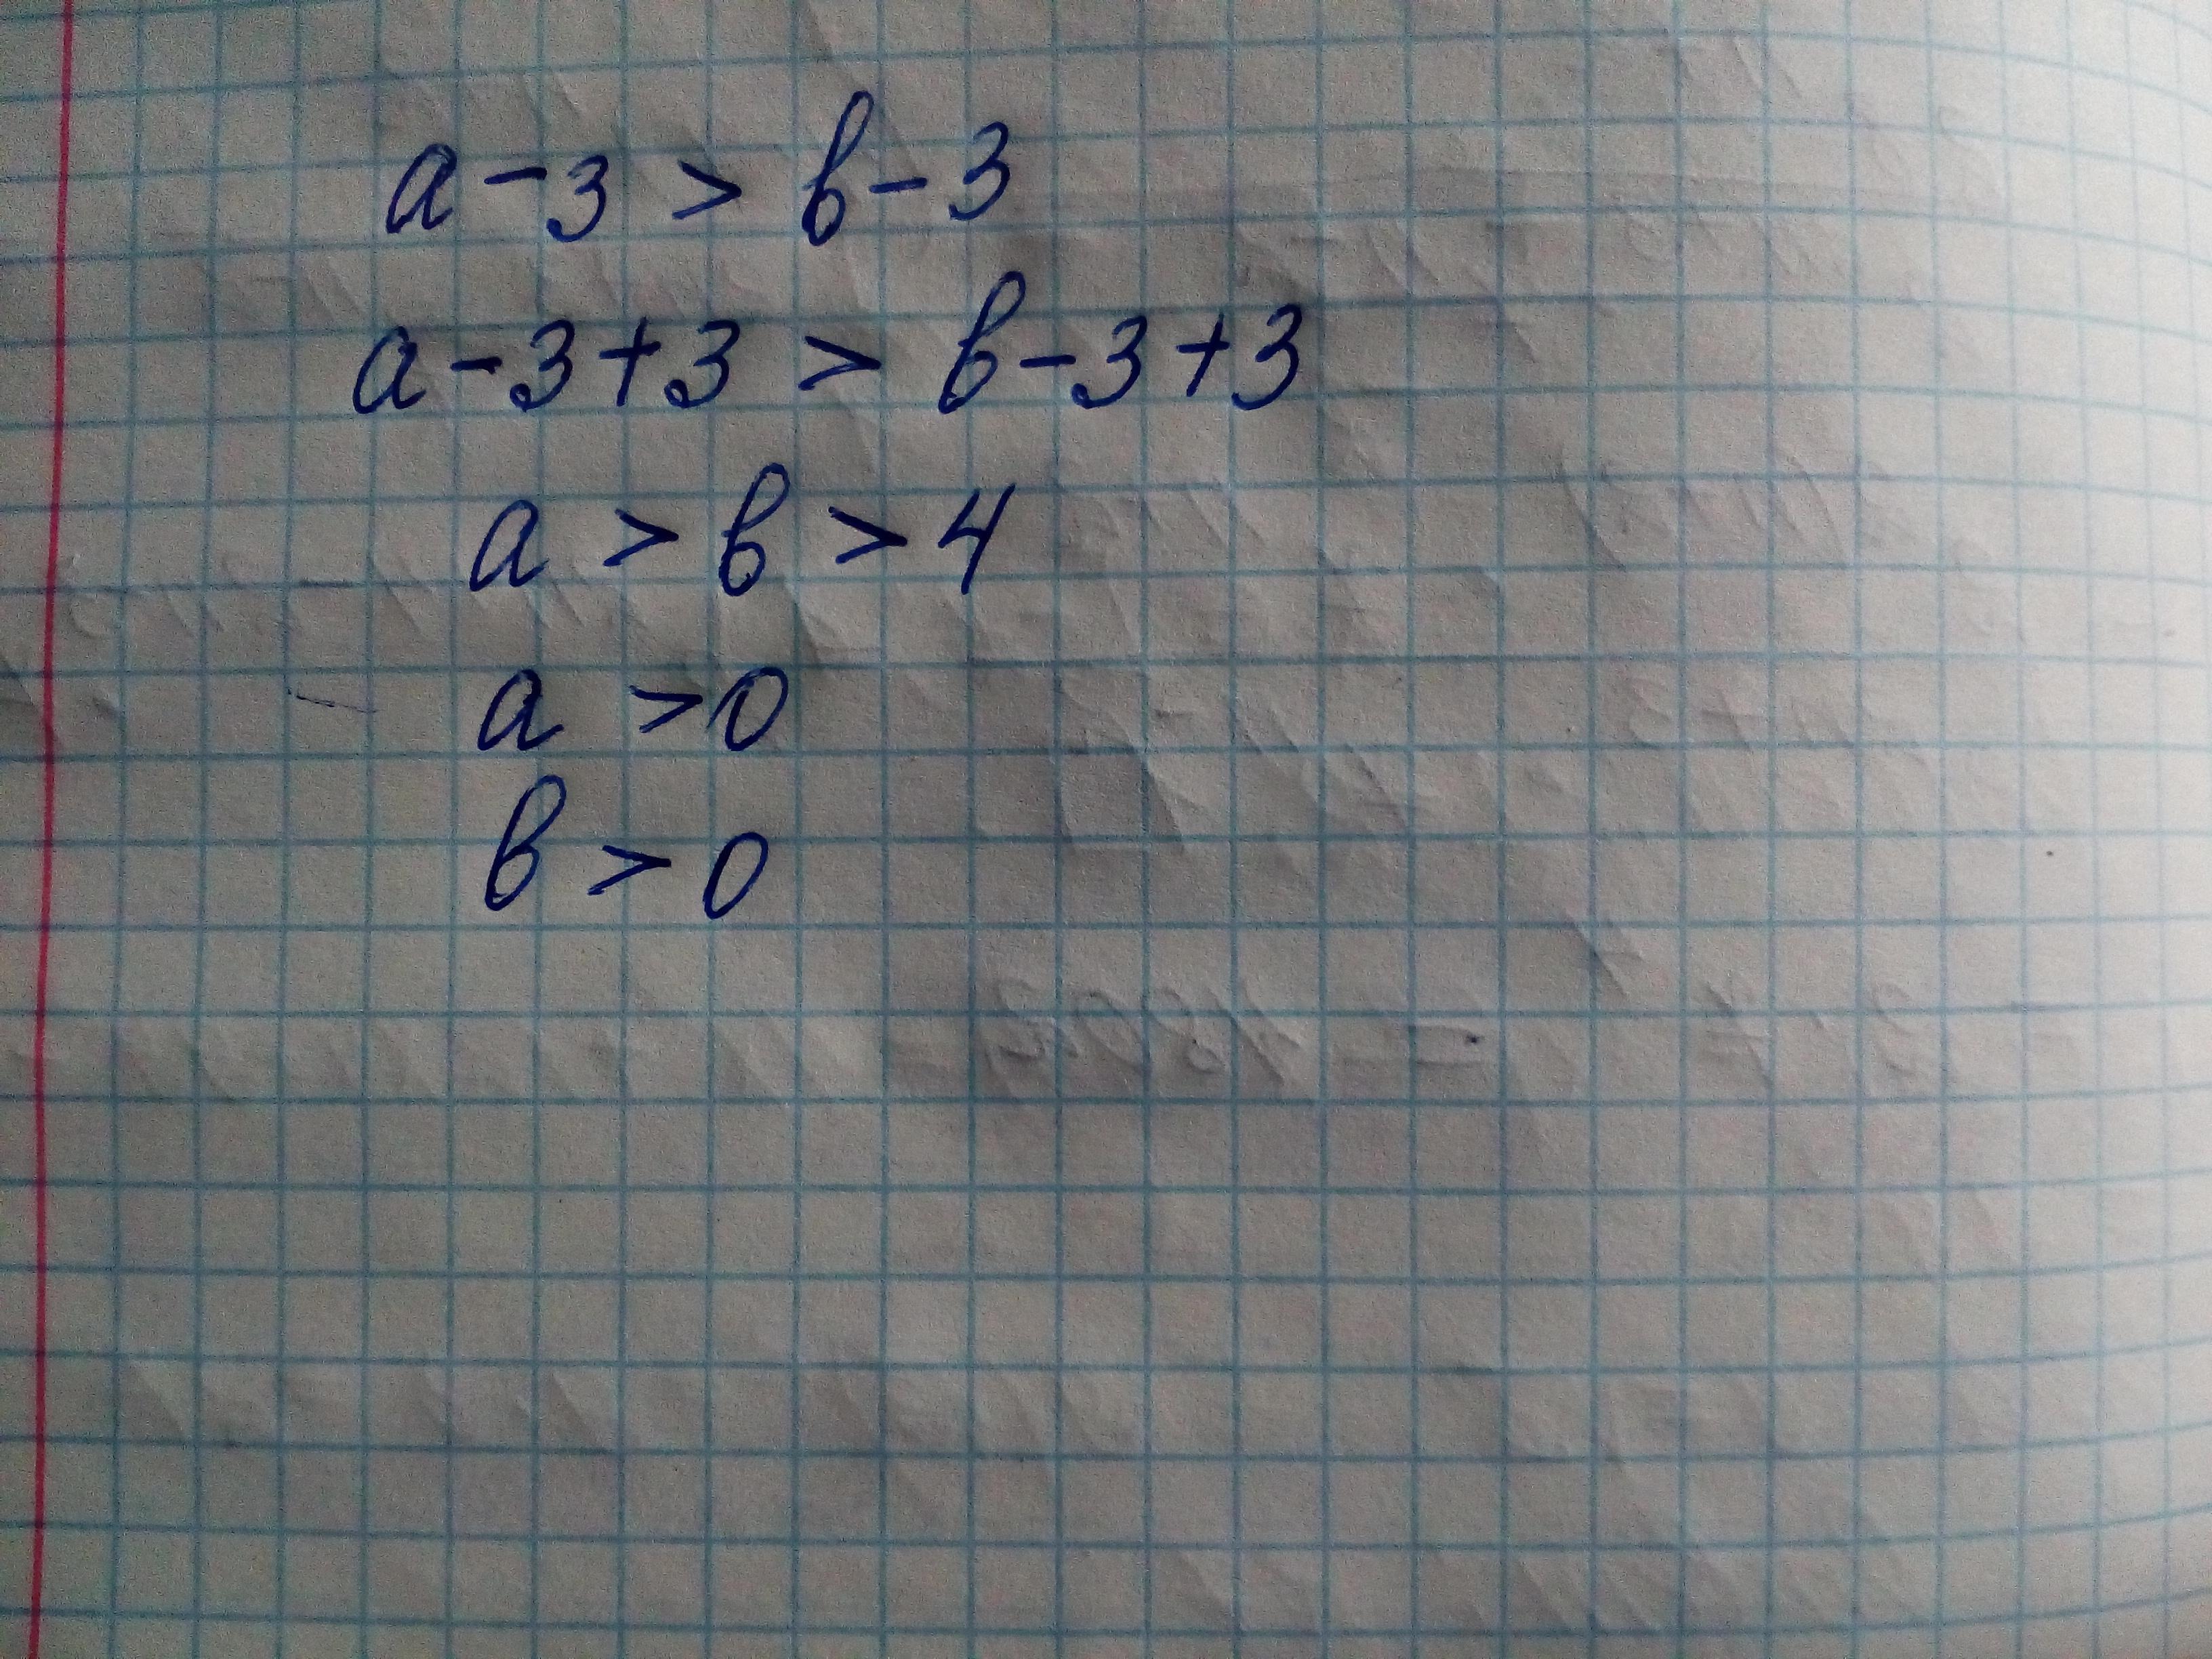 a - 3 > в - 3
a - 3 + 3 > в - 3 + 3
a > в > 4
a > 0
в > 0